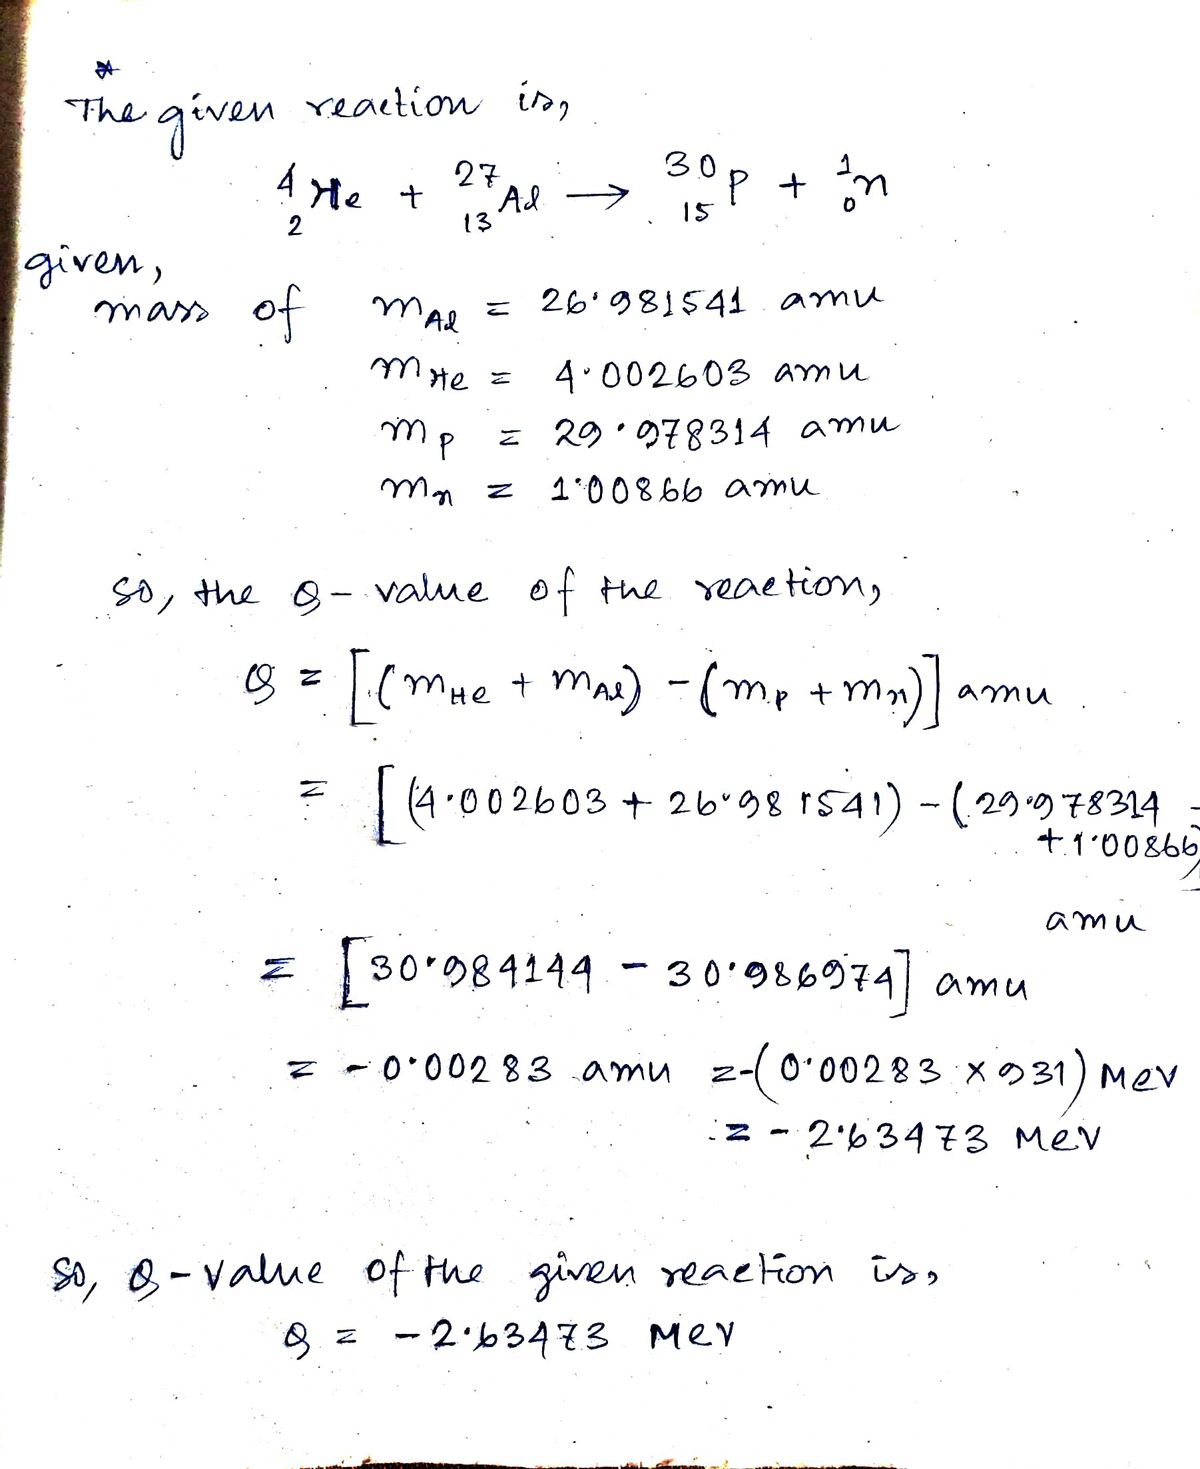 *
The given reaction is,
⁴₂He + ²⁷₁₃Al → ³⁰₁₅P + ¹₀n
given,
mass of m_Al = 26·981541 amu
m_He = 4·002603 amu
m_P = 29·978314 amu
m_n = 1·00866 amu
so, the Q-value of the reaction,
Q = [(m_He + m_Al) - (m_P + m_n)] amu
= [(4·002603 + 26·981541) - (29·978314
+ 1·00866)
amu
= [30·984144 - 30·986974] amu
= -0·00283 amu = -(0·00283 × 931) MeV
= -2·63473 MeV
So, Q-value of the given reaction is,
Q = -2·63473 MeV